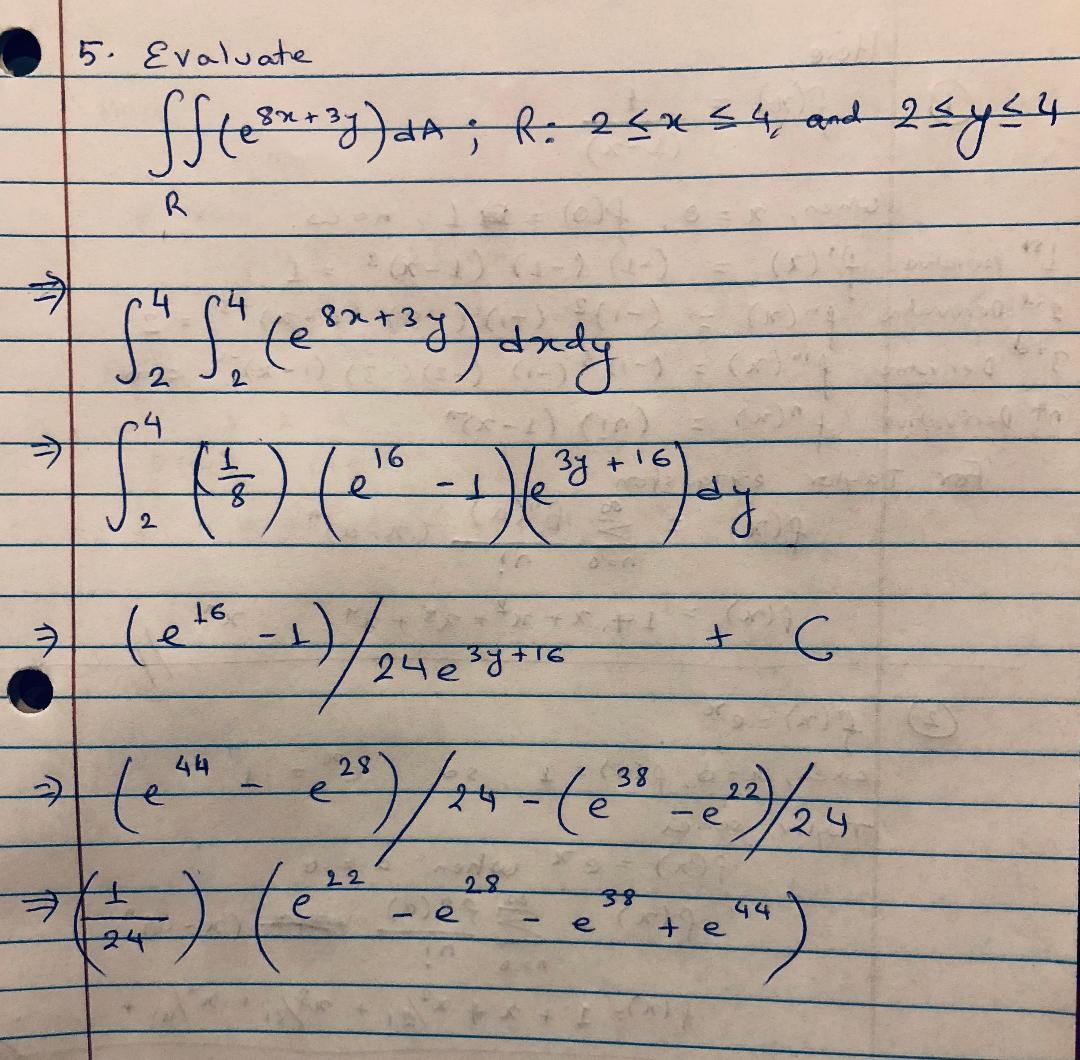 5. Evaluate
∬(e^{8x+3y}) dA ; R: 2 ≤ x ≤ 4, and 2 ≤ y ≤ 4
R
⇒ ∫_2^4 ∫_2^4 (e^{8x+3y}) dxdy
⇒ ∫_2^4 (1/8) (e^{16} - 1)(e^{3y+16}) dy
⇒ (e^{16} - 1)/24e^{3y+16} + C
⇒ (e^{44} - e^{28})/24 - (e^{38} - e^{22})/24
⇒ (1/24) (e^{22} - e^{28} - e^{38} + e^{44})